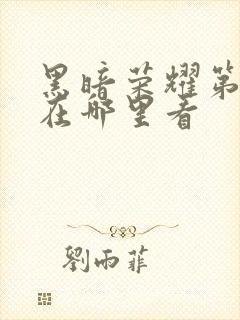 黑暗荣耀第
在哪里看
劉雨菲